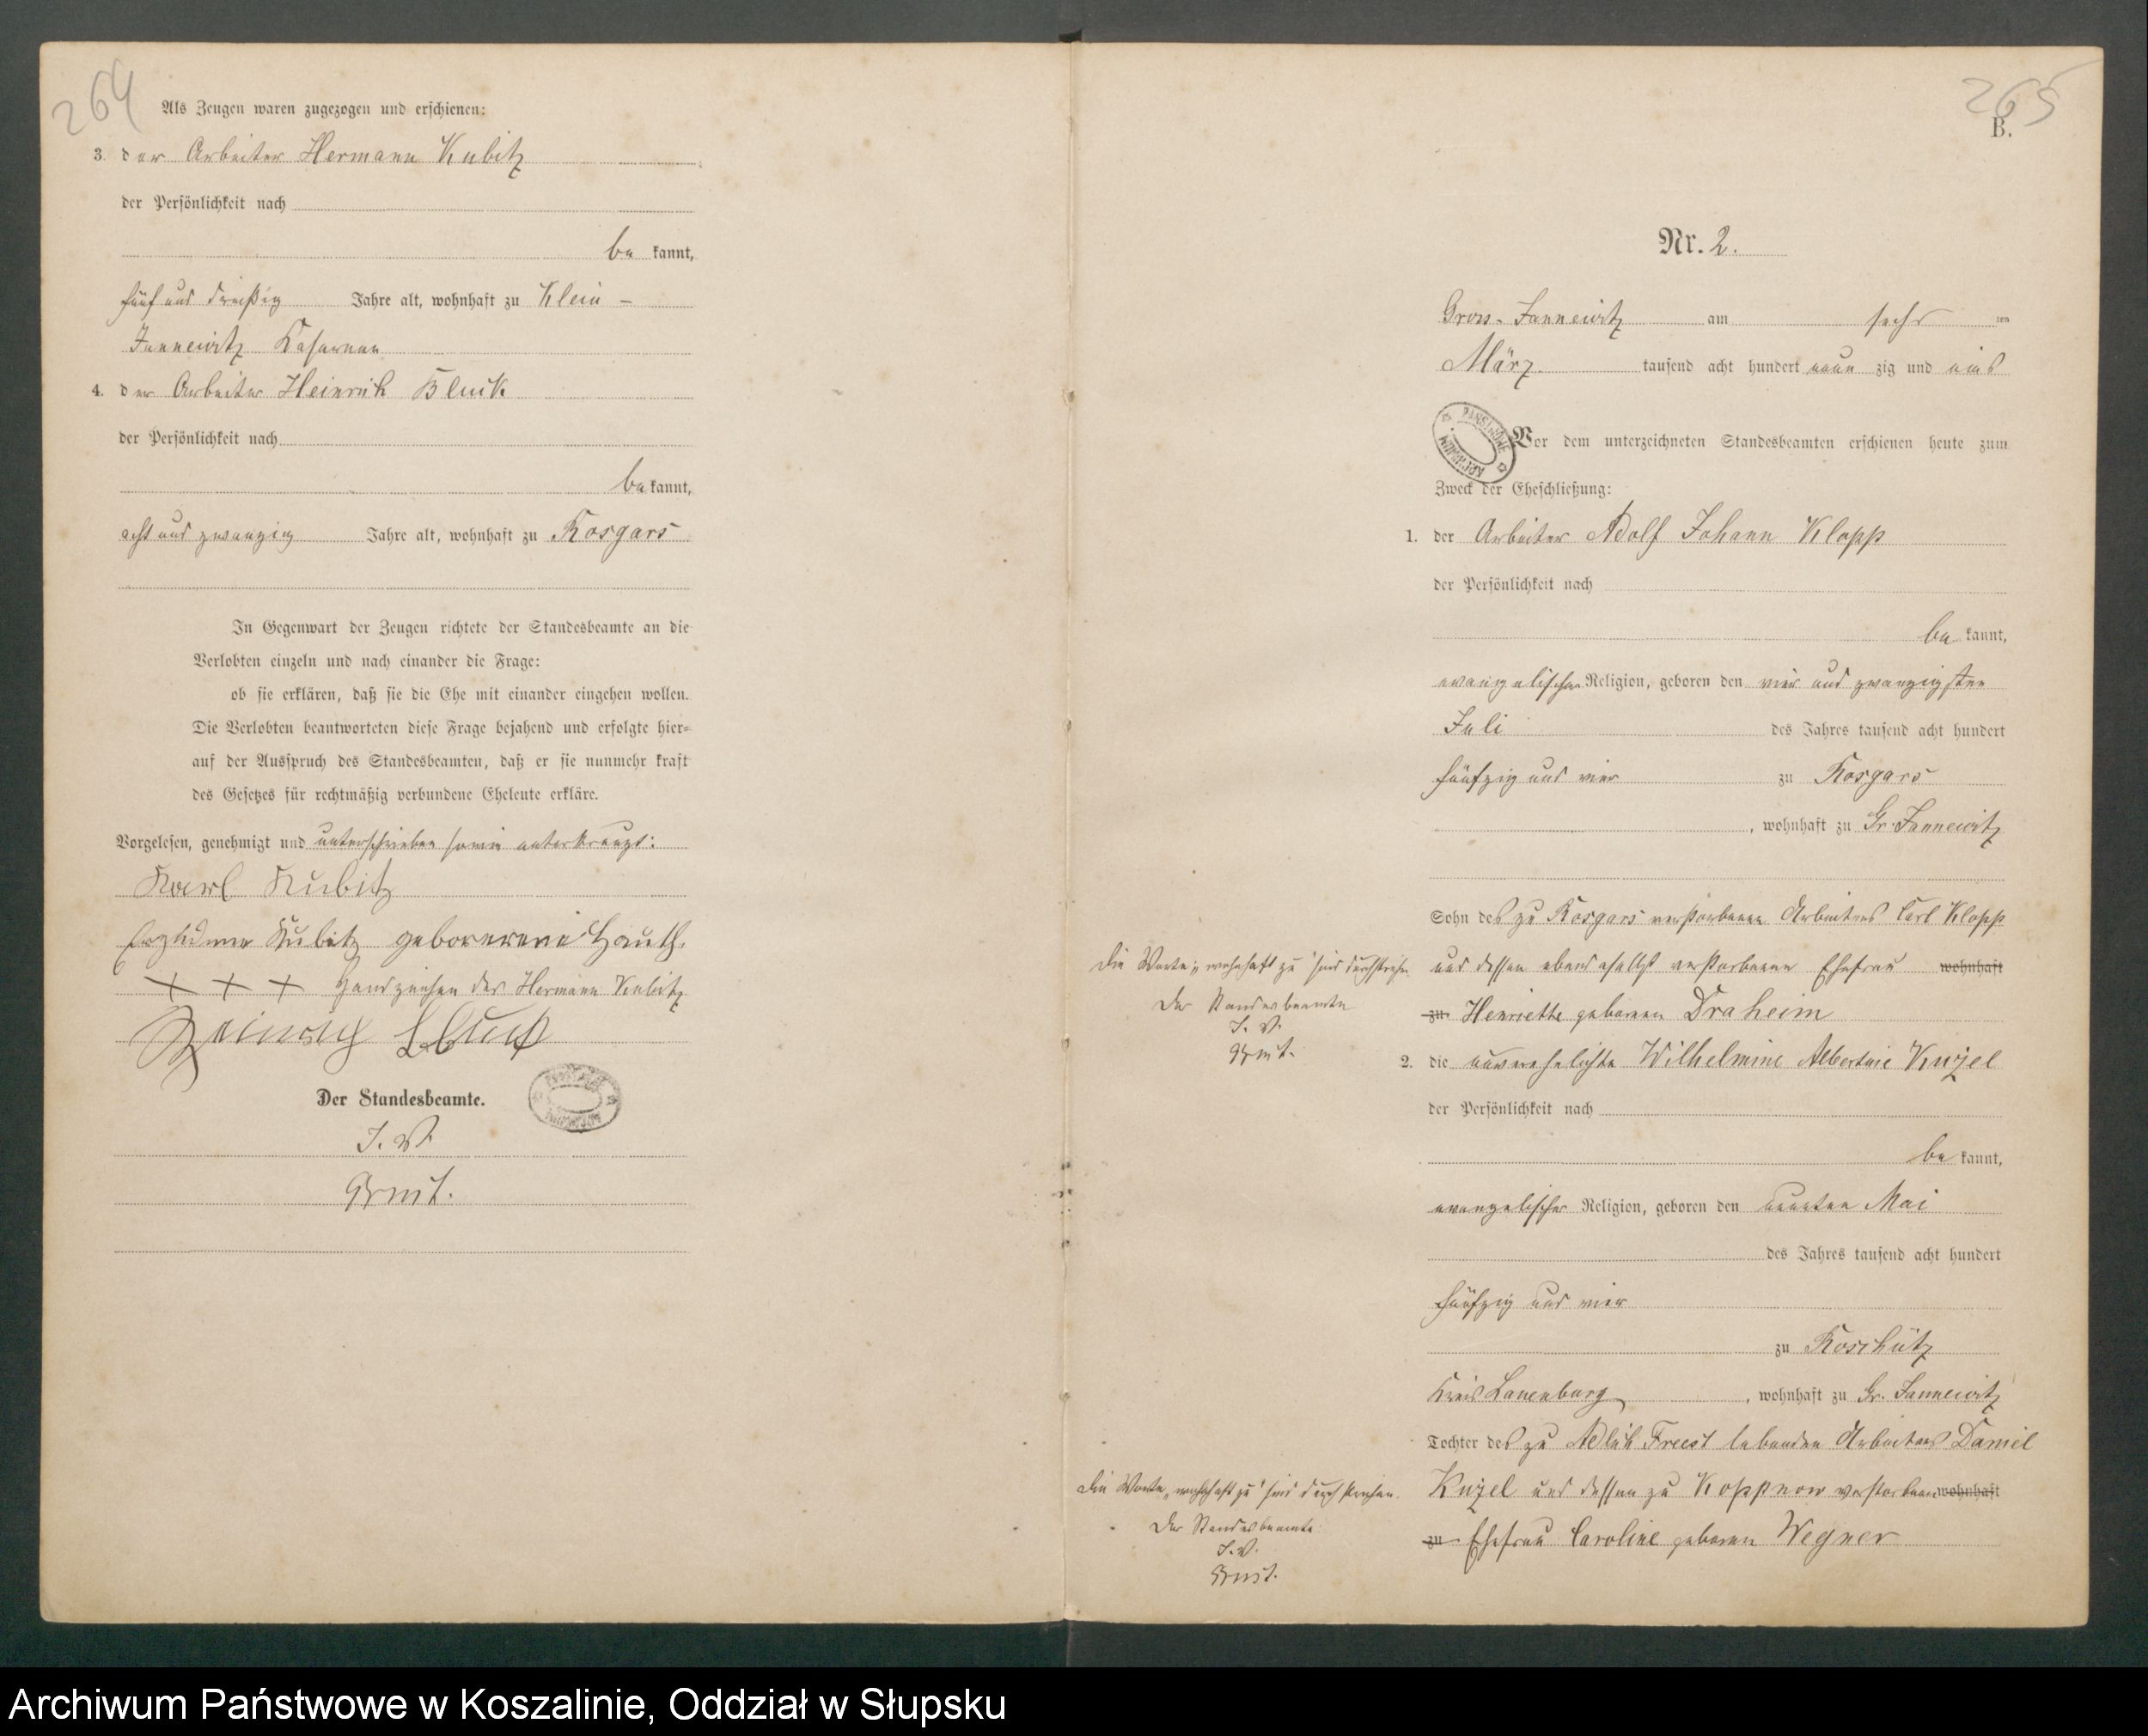 264
Als Zeugen waren zugezogen und erschienen:
3. der Arbeiter Hermann Kubitz
der Persönlichkeit nach
be kannt,
fünf und dreißig Jahre alt, wohnhaft zu Klein -
Jannewitz Kasernen
4. der Arbeiter Heinrich Bluck
der Persönlichkeit nach
be kannt,
acht und zwanzig Jahre alt, wohnhaft zu Rosgars
In Gegenwart der Zeugen richtete der Standesbeamte an die
Verlobten einzeln und nach einander die Frage:
ob sie erklären, daß sie die Ehe mit einander eingehen wollen.
Die Verlobten beantworteten diese Frage bejahend und erfolgte hier=
auf der Ausspruch des Standesbeamten, daß er sie nunmehr kraft
des Gesetzes für rechtmäßig verbundene Eheleute erkläre.
Vorgelesen, genehmigt und unterschrieben sowie unterkreuzt:
Karl Kubitz
Kubitz geborerene Hauth.
+ + + Handzeichen des Hermann Kubitz
Heinrich Bluck
Der Standesbeamte.
J. V.
265
B.
Nr. 2.
Gross-Jannewitz am sechs ten
März tausend acht hundert neun zig und eins
Vor dem unterzeichneten Standesbeamten erschienen heute zum
Zweck der Eheschließung:
1. der Arbeiter Adolf Johann Klopp
der Persönlichkeit nach
be kannt,
evangelischer Religion, geboren den vier und zwanzigsten
Juli des Jahres tausend acht hundert
fünfzig und vier zu Rosgars
, wohnhaft zu Gr. Jannewitz
Sohn des zu Rosgars verstorbenen Arbeiters Carl Klopp
und dessen ebendaselbst verstorbenen Ehefrau wohnhaft
zu Henriette geborenen Draheim
Die Worte: „wohnhaft zu" sind durchstrichen
Der Standesbeamte
J. V.
2. die unverehelichte Wilhelmine Albertine Kuzel
der Persönlichkeit nach
be kannt,
evangelischer Religion, geboren den neunten Mai
des Jahres tausend acht hundert
fünfzig und vier
zu Roschütz
Kreis Lauenburg, wohnhaft zu Gr. Jannewitz
Tochter des zu Adlich Freest lebenden Arbeiters Daniel
Kuzel und dessen zu Koppnow verstorbenen wohnhaft
zu Ehefrau Caroline geborenen Wegner
Die Worte „wohnhaft zu" sind durchstrichen.
Der Standesbeamte
J. V.
Archiwum Państwowe w Koszalinie, Oddział w Słupsku